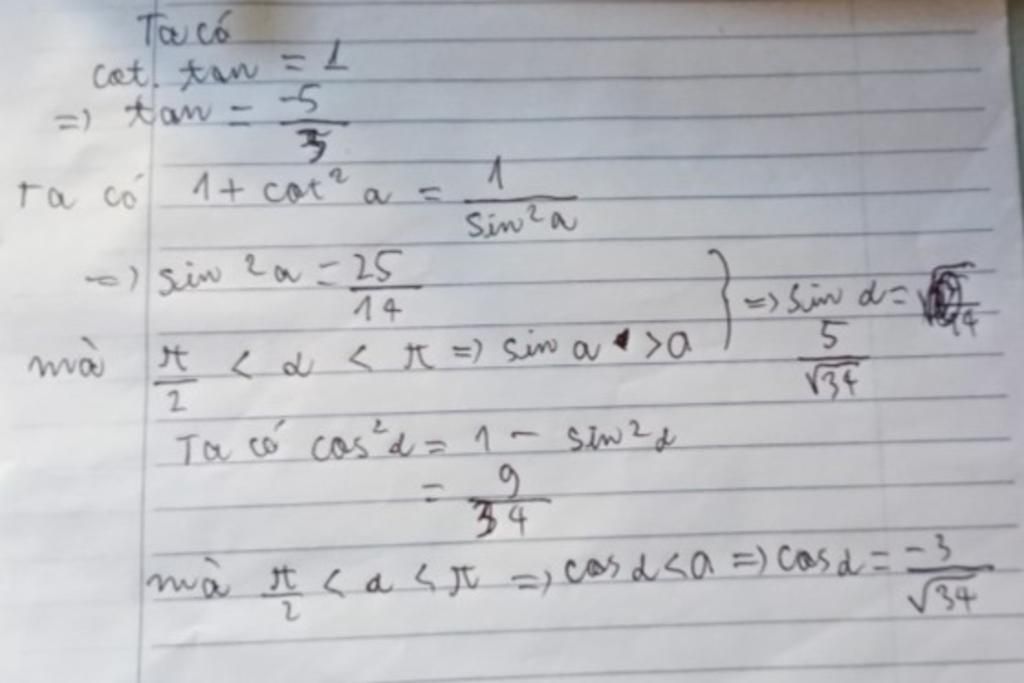 Ta có
cot. tan = 1
=> tan = -5/3
Ta có 1 + cot² a = 1/sin²a
=> sin ²a = 25/14
=> sin α =
mà π/2 < α < π => sin a > a
5/√34
Ta có cos²α = 1 - sin²α
= 9/34
mà π/2 < α < π => cos α < a => cos α = -3/√34